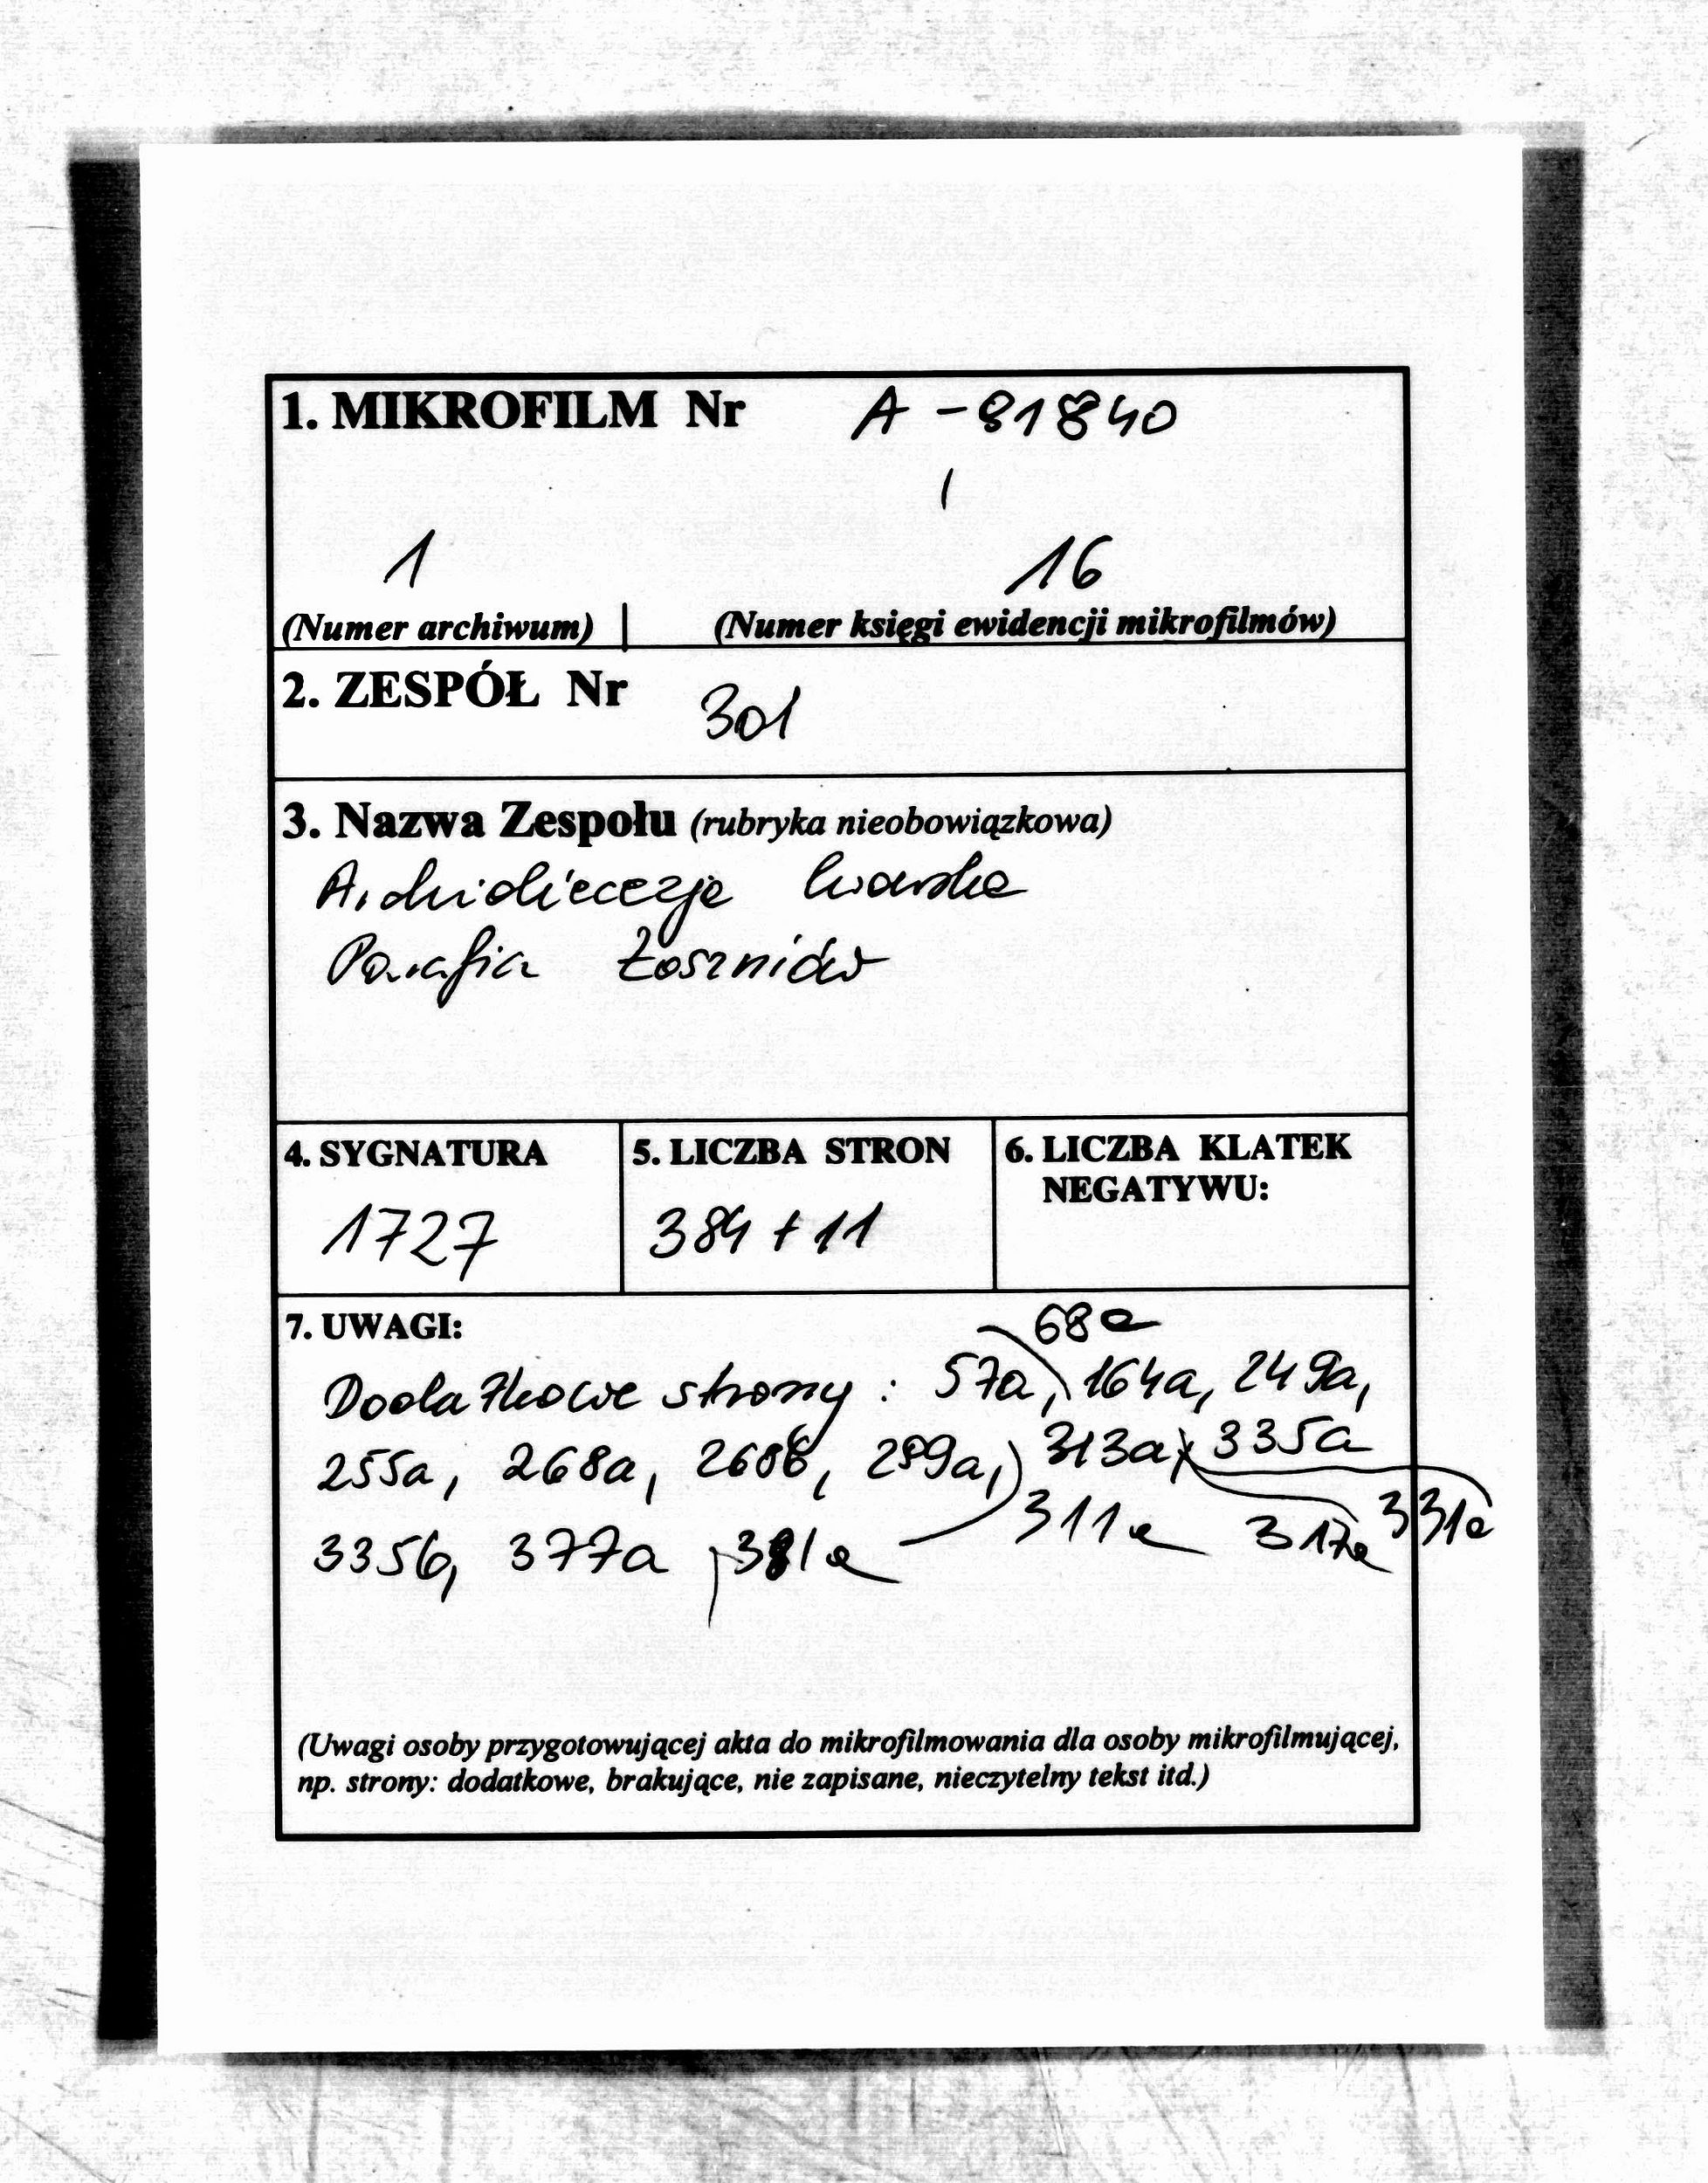 1. MIKROFILM Nr A - 81840
/
1 16
(Numer archiwum) | (Numer księgi ewidencji mikrofilmów)
2. ZESPÓŁ Nr 301
3. Nazwa Zespołu (rubryka nieobowiązkowa)
Archidiecezja lwowska
Parafia Łoszniów
4. SYGNATURA 5. LICZBA STRON 6. LICZBA KLATEK
NEGATYWU:
1727 384 + 11
7. UWAGI: 68a
Dodatkowe strony : 57a, 164a, 249a,
255a, 268a, 268b, 299a, 313a, 335a
311a 317a 331a
335b, 377a, 381a
(Uwagi osoby przygotowującej akta do mikrofilmowania dla osoby mikrofilmującej,
np. strony: dodatkowe, brakujące, nie zapisane, nieczytelny tekst itd.)